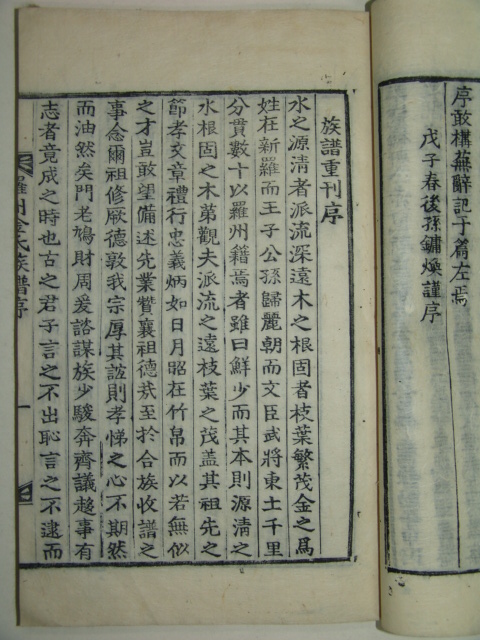 序敢構蕪辭記于篇左焉
戊子春後孫鏞煥謹序
族譜重刊序
水之源清者派流深遠木之根固者枝葉繁茂金之爲
姓在新羅而王子公孫歸麗朝而文臣武將東土千里
分貫數十以羅州籍焉者雖曰鮮少而其本則源清之
水根固之木第觀夫派流之遠枝葉之茂盖其祖先之
節孝文章禮行忠義炳如日月昭在竹帛而以若無似
之才豈敢望備述先業贊襄祖德㢤至於合族收譜之
事念爾祖修厥德敦我宗厚其誼則孝悌之心不期然
而油然矣門老鳩財周爰諮謀族少駿奔齊議趍事有
志者竟成之時也古之君子言之不出恥言之不逮而
羅州金氏族譜序 一